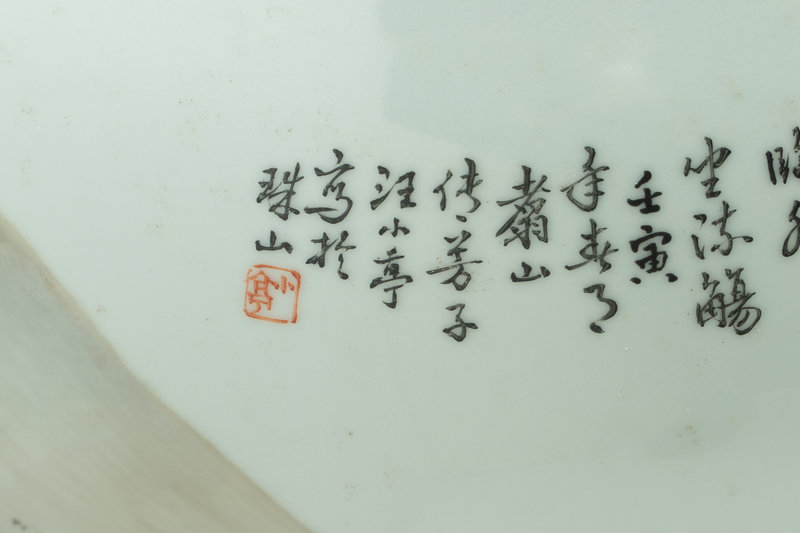 坐流觴
壬寅
年春月
山
传芳子
汪小亭
寫於
珠山
小亭